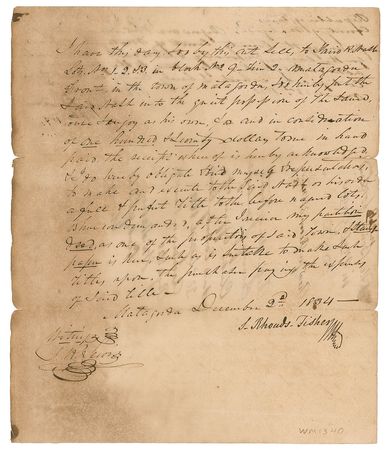 I have this day, do by this act Sell, to David R. Nash
Lots Nos 1, 2, &3, in block No in Matagorda
Front in the town of Matagorda, & do hereby put the
Said Nash into the quiet possession of the Same,
and enjoy as his own, for and in consideration
of One hundred & twenty dollars to me in hand
paid the receipt whereof is hereby acknowledged
& I do hereby obligate &bind myself & representatives,
to make and execute to the said Nash or his order
a full & perfect Title to the before named lots,
deed as one of the proprietors of Said Town, & Stamp
paper is here, such as is suitable to make such
titles upon, the purchaser paying the expenses
of Said title—
Matagorda December 2d 1834—
S. Rhoads Fisher
Witness
WM1340